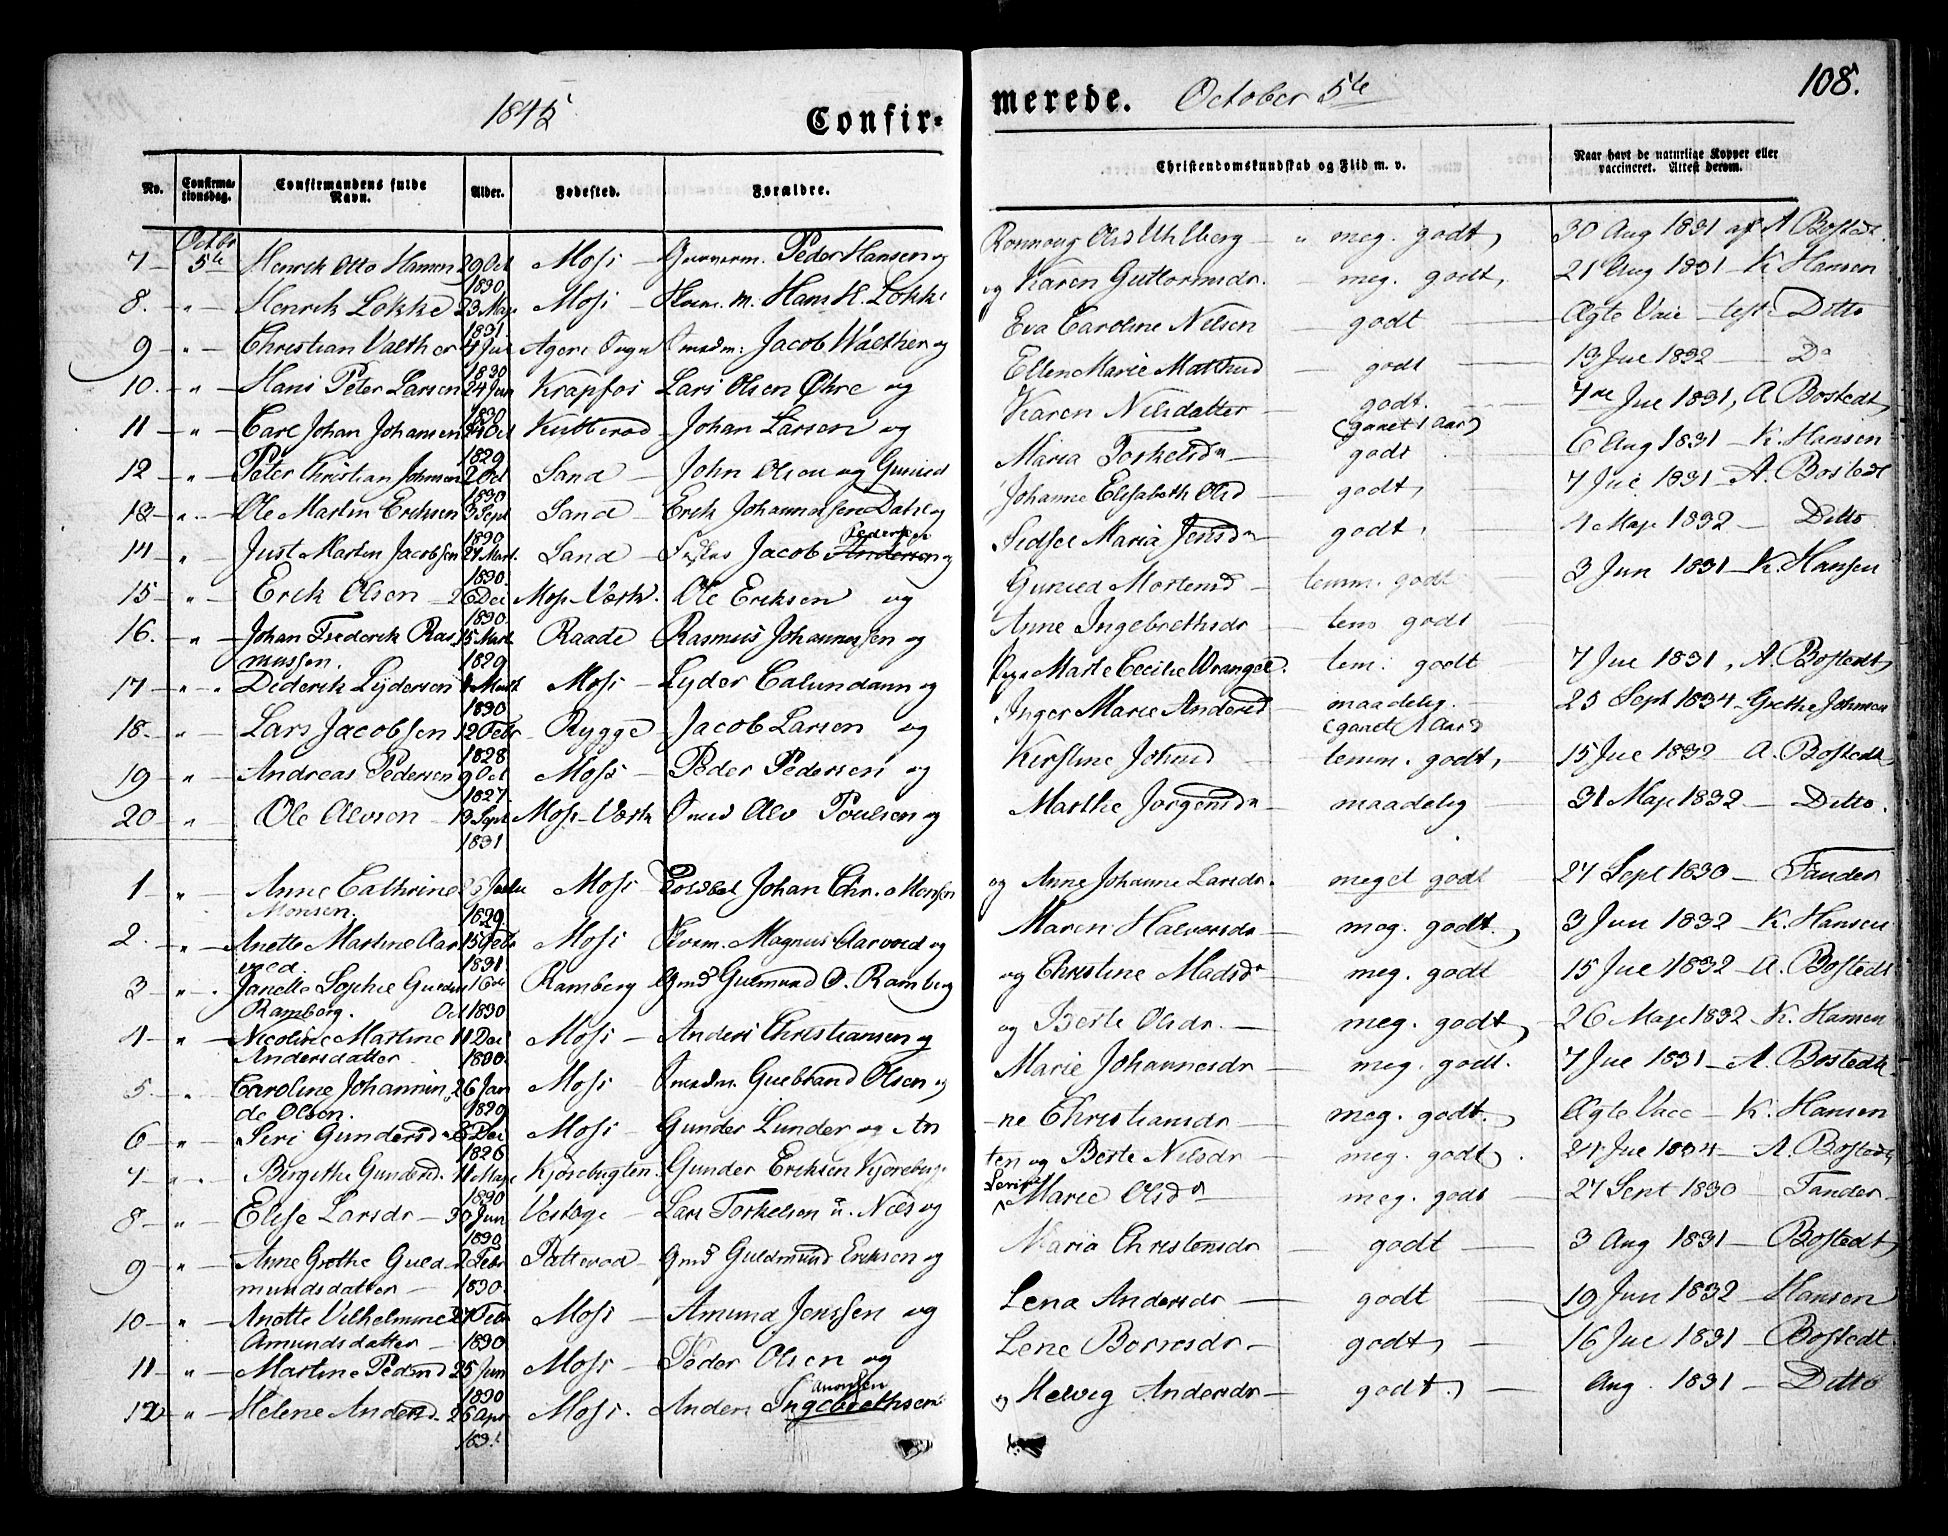 1845 Confir-
merede. October 5te 108.
No. Confirma-tionsdag. Confirmandens fulde Navn. Alder. Fødested. Forældre.
Christendomskundskab og Flid m. v. Naar havt de naturlige Kopper eller vaccineret. Attest derom.
7 Octbr 5te Henrik Otto Hansen 29 Oct 1830 Moss Peder Hansen og
meg. godt 30 Aug 1831 af A Bostedt.
8. " Henrik Løkke 23 Maji 1831. Moss Hans H. Løkke
og Karen Guttormsdr. meg. godt, 21 Aug 1831 K Hansen
9 " Christian Valther 4 Jul 1830 Agers Sogn Jacob Walther og
Eva Caroline Nilsen godt Ægte Vacc Ditto
10. " Hans Peter Larsen 24 Jun 1830 Krapfos Lars Olsen Øhre og
Ellen Marie godt 13 Jul 1832 Do
11 " Carl Johan Johansen 24 Oct 1829 Kulterød Johan Larsen og
Karen Nilsdatter godt. 7de Jul 1831, A Bostedt
(ganet 1 Aar)
12 " Peter Christian Johnsen 2 Oct 1830 Sand John Olsen og Gunild
Maria Torkelsdr godt 6 Aug 1831 K. Hansen
13 " Ole Martin Eriksen 3 Sept 1830 Sand Erik Johannessen Dahl og
Johanne Elisabeth Olsd godt, 7 Jul 1831 A. Bostedt
14 " Just Martin Jacobsen 27 Mart. 1830. Sand Jacob Andersen Pedersen og
Sidsel Maria Jensdr godt, 4 Maji 1832 Ditto
15 " Erik Olsen 26 Dec 1830 Moss Værk. Ole Eriksen og
Gunild Mortensd temm. godt 3 Jun 1831 K. Hansen
16. " Johan Frederik Rasmussen. 15 Mart 1829 Raade Rasmus Johannessen og
Anne Ingebrethsdr tem godt
17 " Diderik Lydersen Mart 1830 Moss Lyder Calundann og
Marte Cecilie Wrangel. tem. godt 7 Jul 1831, A. Bostedt
18. " Lars Jacobsen 12 Febr 1828 Rygge Jacob Larsen og
Inger Marie Andersd maadelig. 25 Sept 1834 Grethe Johnsen
19 " Andreas Pedersen 9 Oct 1827. Moss Peder Pedersen og
Kirstine temm. godt, 15 Jul 1832 A. Bostedt
20 " Ole Alvsen 13 Sept 1831 Moss Værk Alv Poulsen og
Marthe Jørgensdr maadelig 31 Maji 1832 Ditto.
1 " Anne Cathrine Monsen. 1829 Moss Johan Chr. Monsen
og Anne Johanne Larsdr. meget godt 27 Sept 1830 Fander
2. " Anette Martine Aarvold. 15 Febr 1831 Moss Magnus Aarvold og
Maren Halvorsdr meg. godt. 3 Jun 1832 K. Hansen
3 " Janette Sophie Ramberg. Oct 1830 Ramberg Gmd Gulmund O. Ramberg
og Christine Madsdr meg. godt 15 Jul 1832 A. Bostedt
4 " Nicoline Martine Andersdatter 11 Dec 1830. Moss Anders Christiansen og
og Berte Olsdr. meg. godt, 26 Maji 1832 K. Hansen
5. " Caroline Johanninde Olsen. 26 Jan 1829 Moss Gulbrand Olsen og
Marie Johannesdr meg. godt. 7 Jul 1831 A. Bostedt
6 " Siri Gundersd Dec 1826 Moss Gunder Lunder og An
-ne Christiansdr meg. godt. Ægte Vacc K. Hansen
7 " Birgithe Gundersd. 11 Maji 1830 Kjørebugten. Gunder Eriksen Kjørebug-
ten og Berte Nilsdr meg. godt. 24 Jul 1834 A. Bostedt
8 " Elise Larsdr 30 Jun 1830 Lars Torkelsen u. Næs og
Marie Olsdr meg. godt 27 Sept 1830 Fander
9 " Anne Grethe Guldmundsdatter 2 Febr 1830. Patterød Gmd Guldmund Eriksen og
Maria Christensdr godt 3 Aug 1831 Bostedt
10 " Anette Vilhelmine Amundsdatter 27 Febr 1830 Moss Amund Jenssen og
Lena Andersdr godt 19 Jun 1832 Hansen
11 " Martine Pedersd 25 Jun 1830 Moss Peder Olsen og
Lene godt, 16 Jul 1831 Bostedt.
12 " Helene Andersd. 26 Apr 183 Moss. Anders Ingebrethsen
og Helvig Andersdr godt. Aug. 1831 Ditto